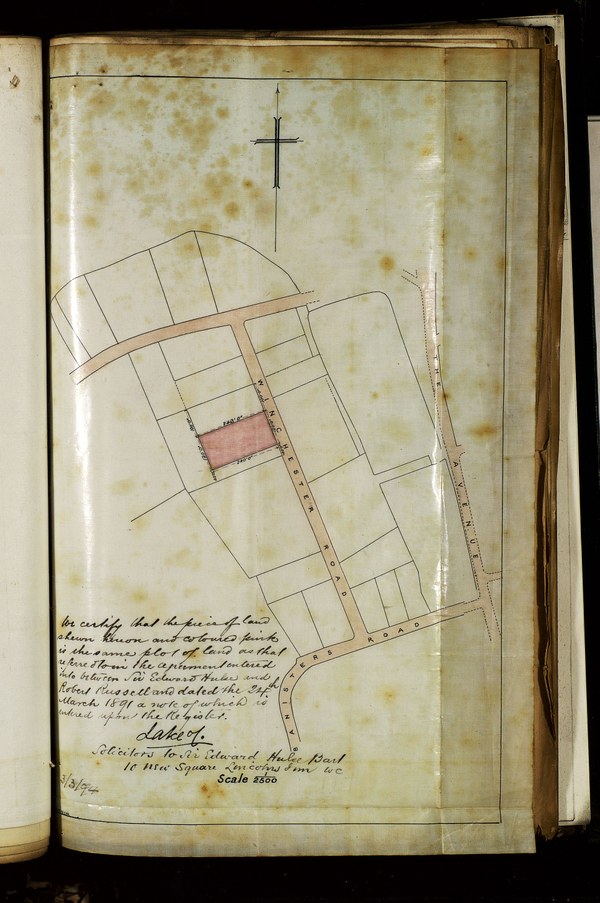 THE AVENUE
WINCHESTER ROAD
240'.0"
240'.0"
BANISTERS ROAD
We certify that the piece of land
shewn hereon and coloured pink
is the same plot of land as that
referred to in the agreement entered
into between Sir Edward Hulse and
Robert Russell and dated the 24th
March 1891 a note of which is
entered upon the Register.
Lake &
Solicitors to Sir Edward Hulse Bart
10 New Square Lincolns Inn WC
Scale 1/2500